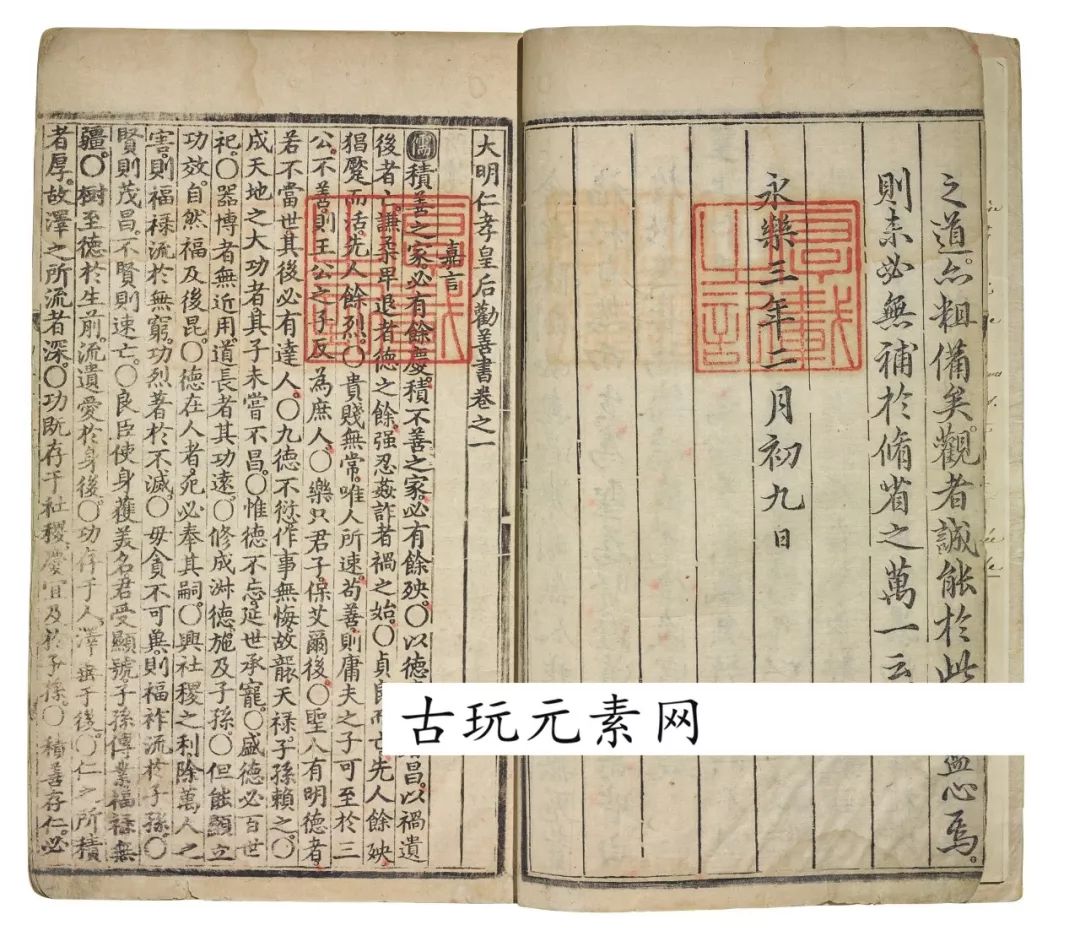 之道。亦粗備矣。觀者誠能於此盡心焉。
則未必無補於脩省之萬一云
永樂三年二月初九日
厚載之記
大明仁孝皇后勸善書卷之一
嘉言
儒積善之家必有餘慶。積不善之家。必有餘殃。〇以德昌。以禍遺
後者亡。謙柔卑退者德之餘。强忍姦詐者禍之始。〇貞良而亡先人餘殃
猖蹷而活。先人餘烈。〇貴賤無常。唯人所速。苟善。則庸夫之子可至於三
公。不善。則王公之子反為庶人。〇樂只君子。保艾爾後。〇聖人有明德者。
若不當世。其後必有達人。〇九德不愆。作事無悔。故襲天禄。子孫賴之。〇
成天地之大功者。其子未嘗不昌。〇惟德不忘。延世承寵。〇盛德必百世
祀。〇器博者無近用。道長者其功遠。〇修成淋德。施及子孫。〇但能顯立
功效。自然福及後昆。〇德在人者。死必奉其嗣。〇興社稷之利。除萬人之
害。則福禄流於無窮。功烈著於不滅。〇毋貪不可冀。則福祚流於子孫。〇
賢則茂昌。不賢則速亡。〇良臣使身獲美名。君受顯號。子孫傳業。福禄無
疆。〇樹至德於生前。流遺愛於身後。〇功存于人。澤垂于後。〇仁之所積
者厚。故澤之所流者深。〇功既存于社稷。慶宜及於子孫。〇積善存仁。必
古玩元素网